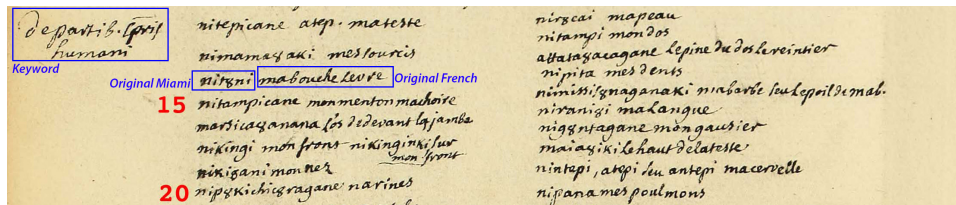 de partib. corporis
humani
Keyword
Original Miami
Original French
15
20
nitepicane atep. mateste
nimamaȣaki mes sourcis
nitȣni ma bouche levre
nitampicane mon menton machoire
marsicaȣanana l'os de devant la jambe
nikingi mon front nikinginkisur
mon front
nikiȣani mon nez
nipȣkichiȣragane narines
nirȣcai ma peau
nitampi mon dos
attataȣacagane lepine du dos le reintier
nipita mes dents
nimissiȣnaganaki ma barbe seu le poil de ma b.
niraniȣi ma langue
nigȣntagane mon gausier
maiaȣikile haut de la teste
nintepi, atepi seu antepi ma cervelle
nipana mes poulmons